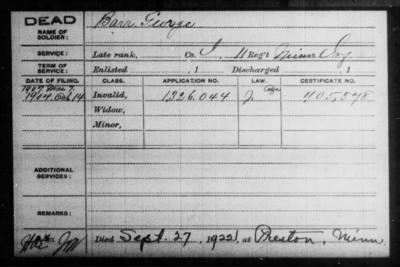 DEAD
NAME OF SOLDIER:
Barr George
SERVICE:
Late rank, Co. I, 11 Reg't Minn Inf.
TERM OF SERVICE:
Enlisted , 1 Discharged , 1
DATE OF FILING. CLASS. APPLICATION NO. LAW. CERTIFICATE NO.
1907 Mar 7.
1904 Oct 14 Invalid, 1326.044 405,578
Widow,
Minor,
ADDITIONAL SERVICES:
REMARKS:
Died Sept. 27, 1922, at Preston, Minn